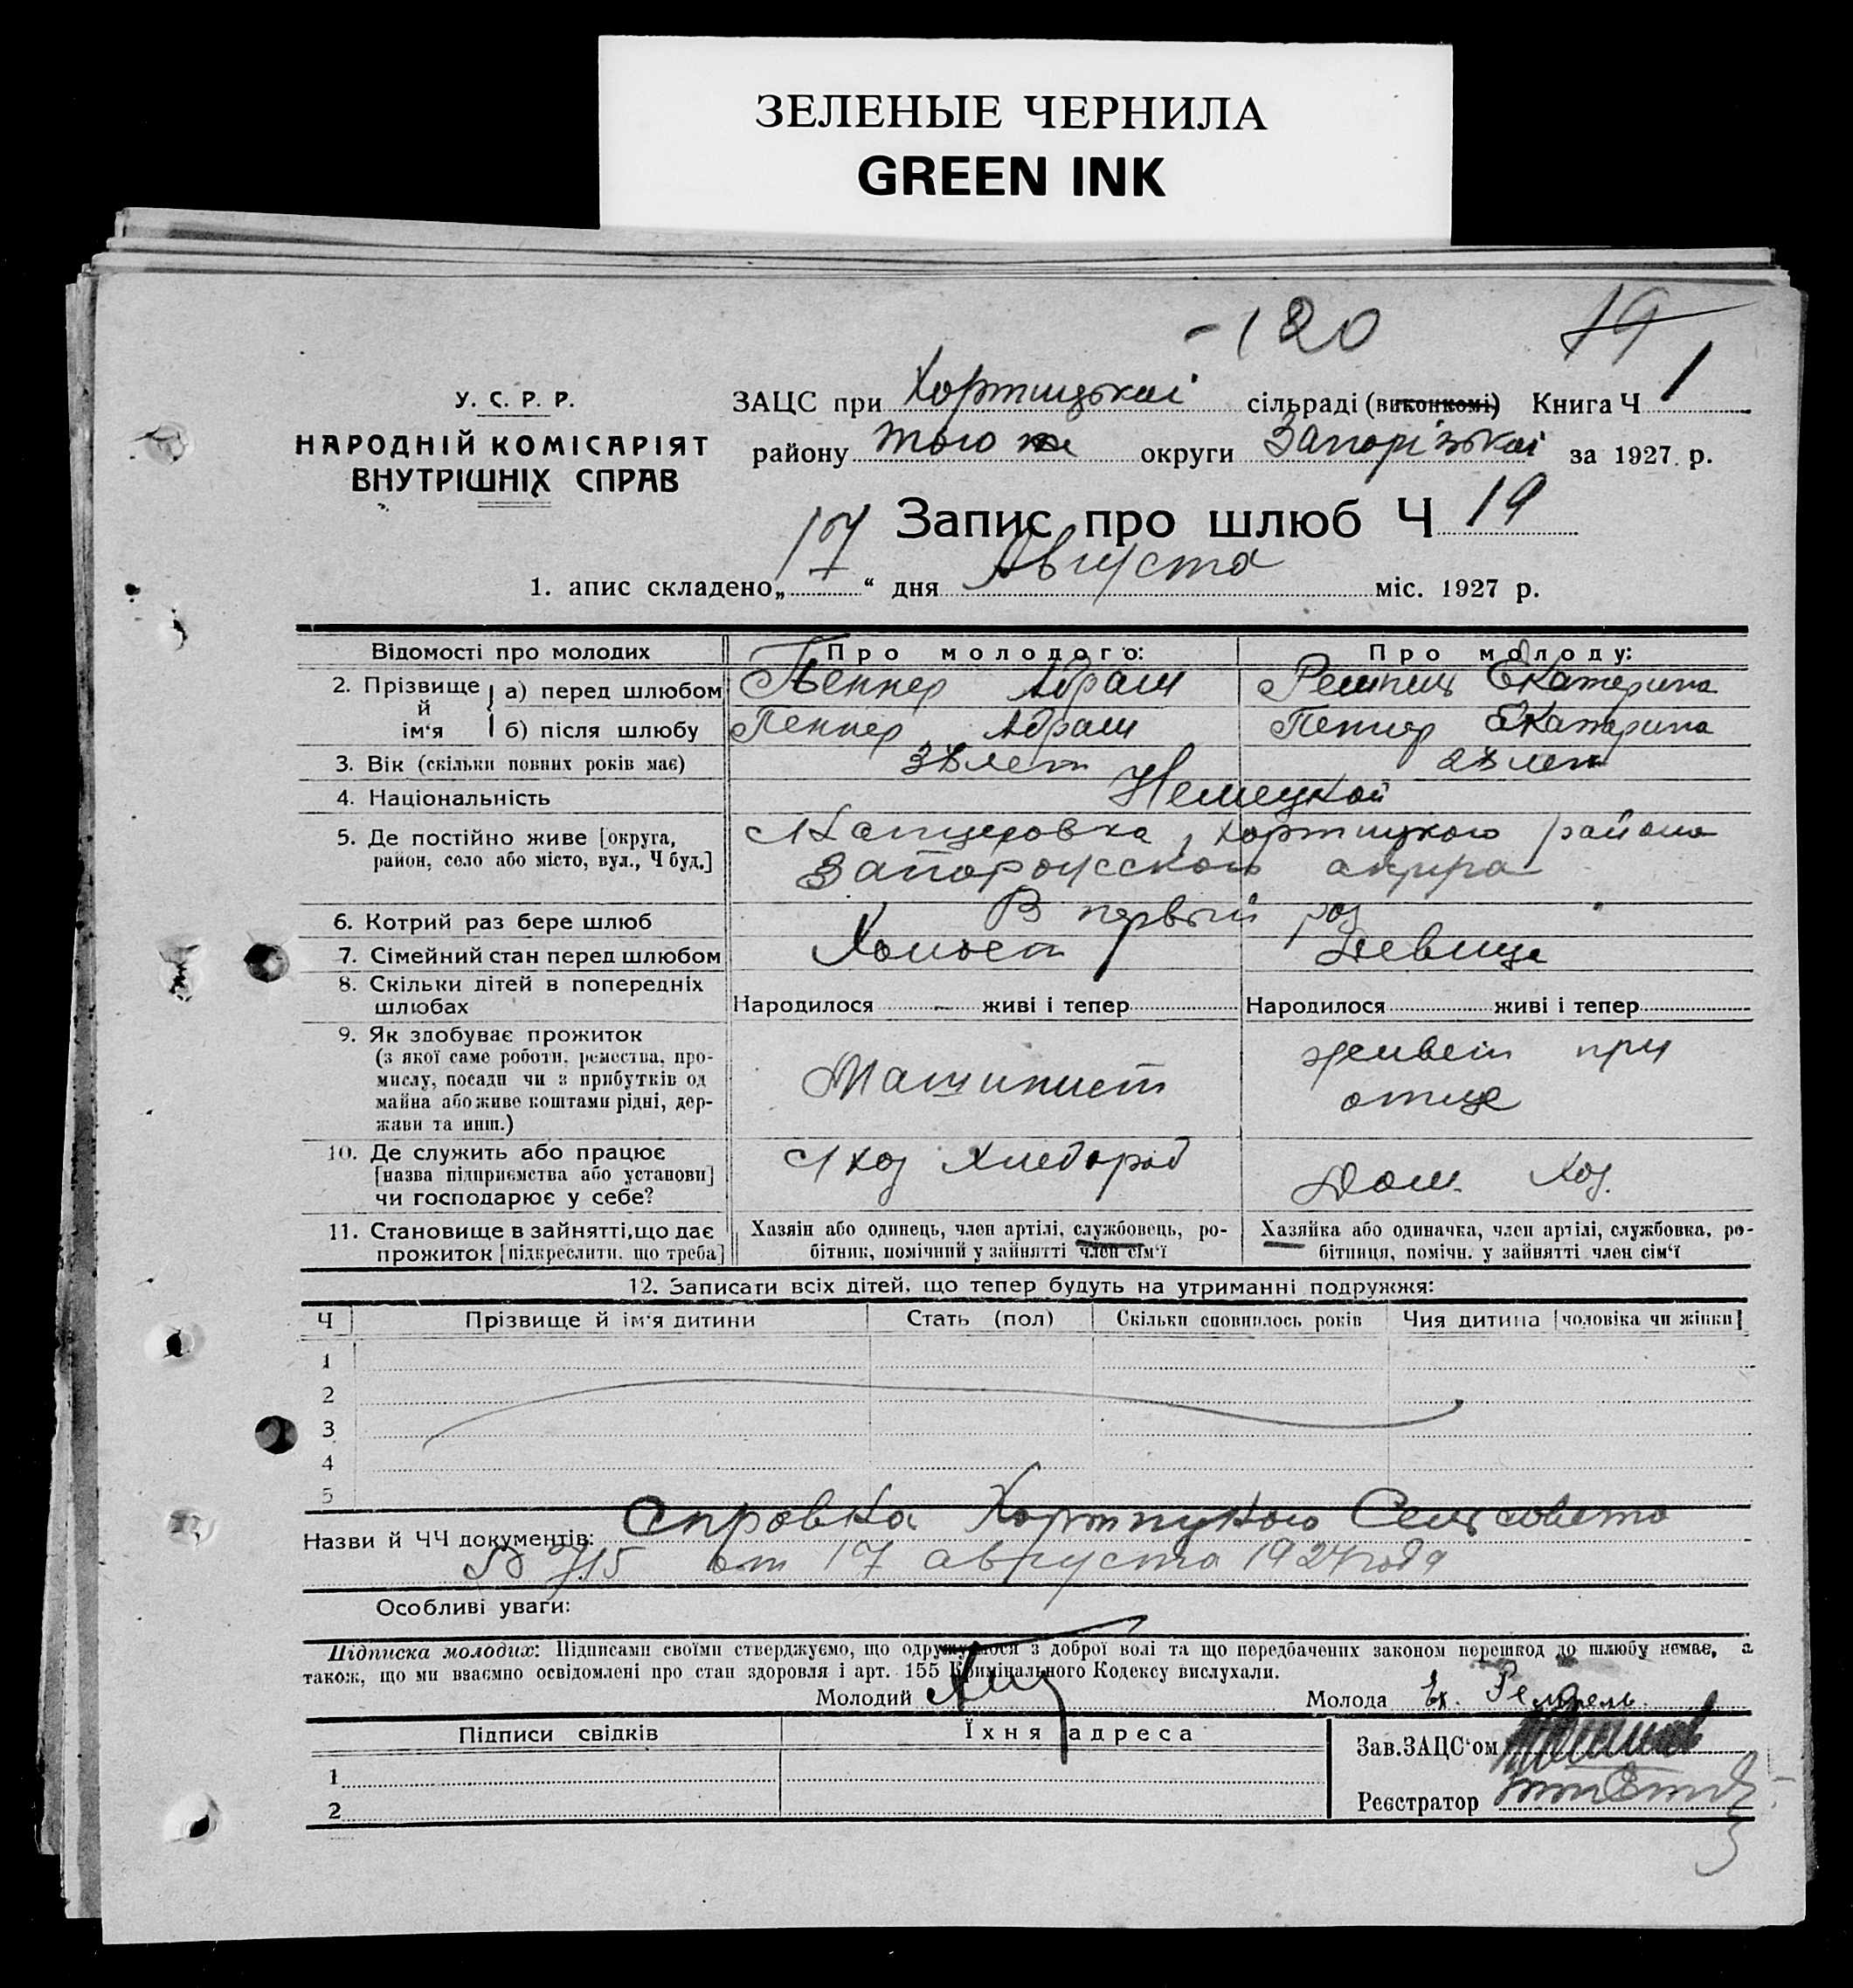 ЗЕЛЕНЫЕ ЧЕРНИЛА
GREEN INK
-120 19
У. С. Р. Р.
НАРОДНІЙ КОМІСАРІЯТ
ВНУТРІШНІХ СПРАВ
ЗАЦС при Хортицькій сільраді (виконкомі) Книга Ч 1
району того же округи Запорізькій за 1927 р.
Запис про шлюб Ч 19
1. апис складено „17“ дня Августа міс. 1927 р.
Відомості про молодих Про молодого: Про молоду:
2. Прізвище й ім'я а) перед шлюбом Пеннер Абрам Екатерина
б) після шлюбу Пеннер Абрам Пеннер Екатерина
3. Вік (скільки повних років має) лет лет
4. Національність Немецкой
5. Де постійно живе [округа, район, село або місто, вул., Ч буд.] Канцеровка, Хортицкого района
Запорожского округа
6. Котрий раз бере шлюб В первый раз
7. Сімейний стан перед шлюбом Холост Девица
8. Скільки дітей в попередніх шлюбах Народилося - живі і тепер Народилося живі і тепер
9. Як здобуває прожиток
(з якої саме роботи, ремества, про-
мислу, посади чи з прибутків од
майна або живе коштами рідні, дер-
жави та инш.)
Машинист
живет при
отце
10. Де служить або працює
[назва підприємства або установи]
чи господарює у себе?
Дом. хоз.
11. Становище в зайнятті, що дає
прожиток [підкреслити. що треба]
Хазяїн або одинець, член артілі, службовець, ро-
бітник, помічний у зайнятті член сім'ї
Хазяйка або одиначка, член артілі, службовка, ро-
бітниця, помічн. у зайнятті член сім'ї
12. Записати всіх дітей, що тепер будуть на утриманні подружжя:
Ч Прізвище й ім'я дитини Стать (пол) Скільки сповнилось років Чия дитина [чоловіка чи жінки]
1
2
3
4
5
Назви й ЧЧ документів: Справка Хортицкого Сельсовета
715 от 17 августа 1927 года
Особливі уваги:
Підписка молодих: Підписами своїми стверджуємо, що одружуємося з доброї волі та що передбачених законом перешкод до шлюбу немає, а
також, що ми взаємно освідомлені про стан здоровля і арт. 155 Кримінального Кодексу вислухали.
Молодий Молода Ек. Ремпель
Підписи свідків Їхня адреса
Зав. ЗАЦС'ом
1
Реєстратор
2